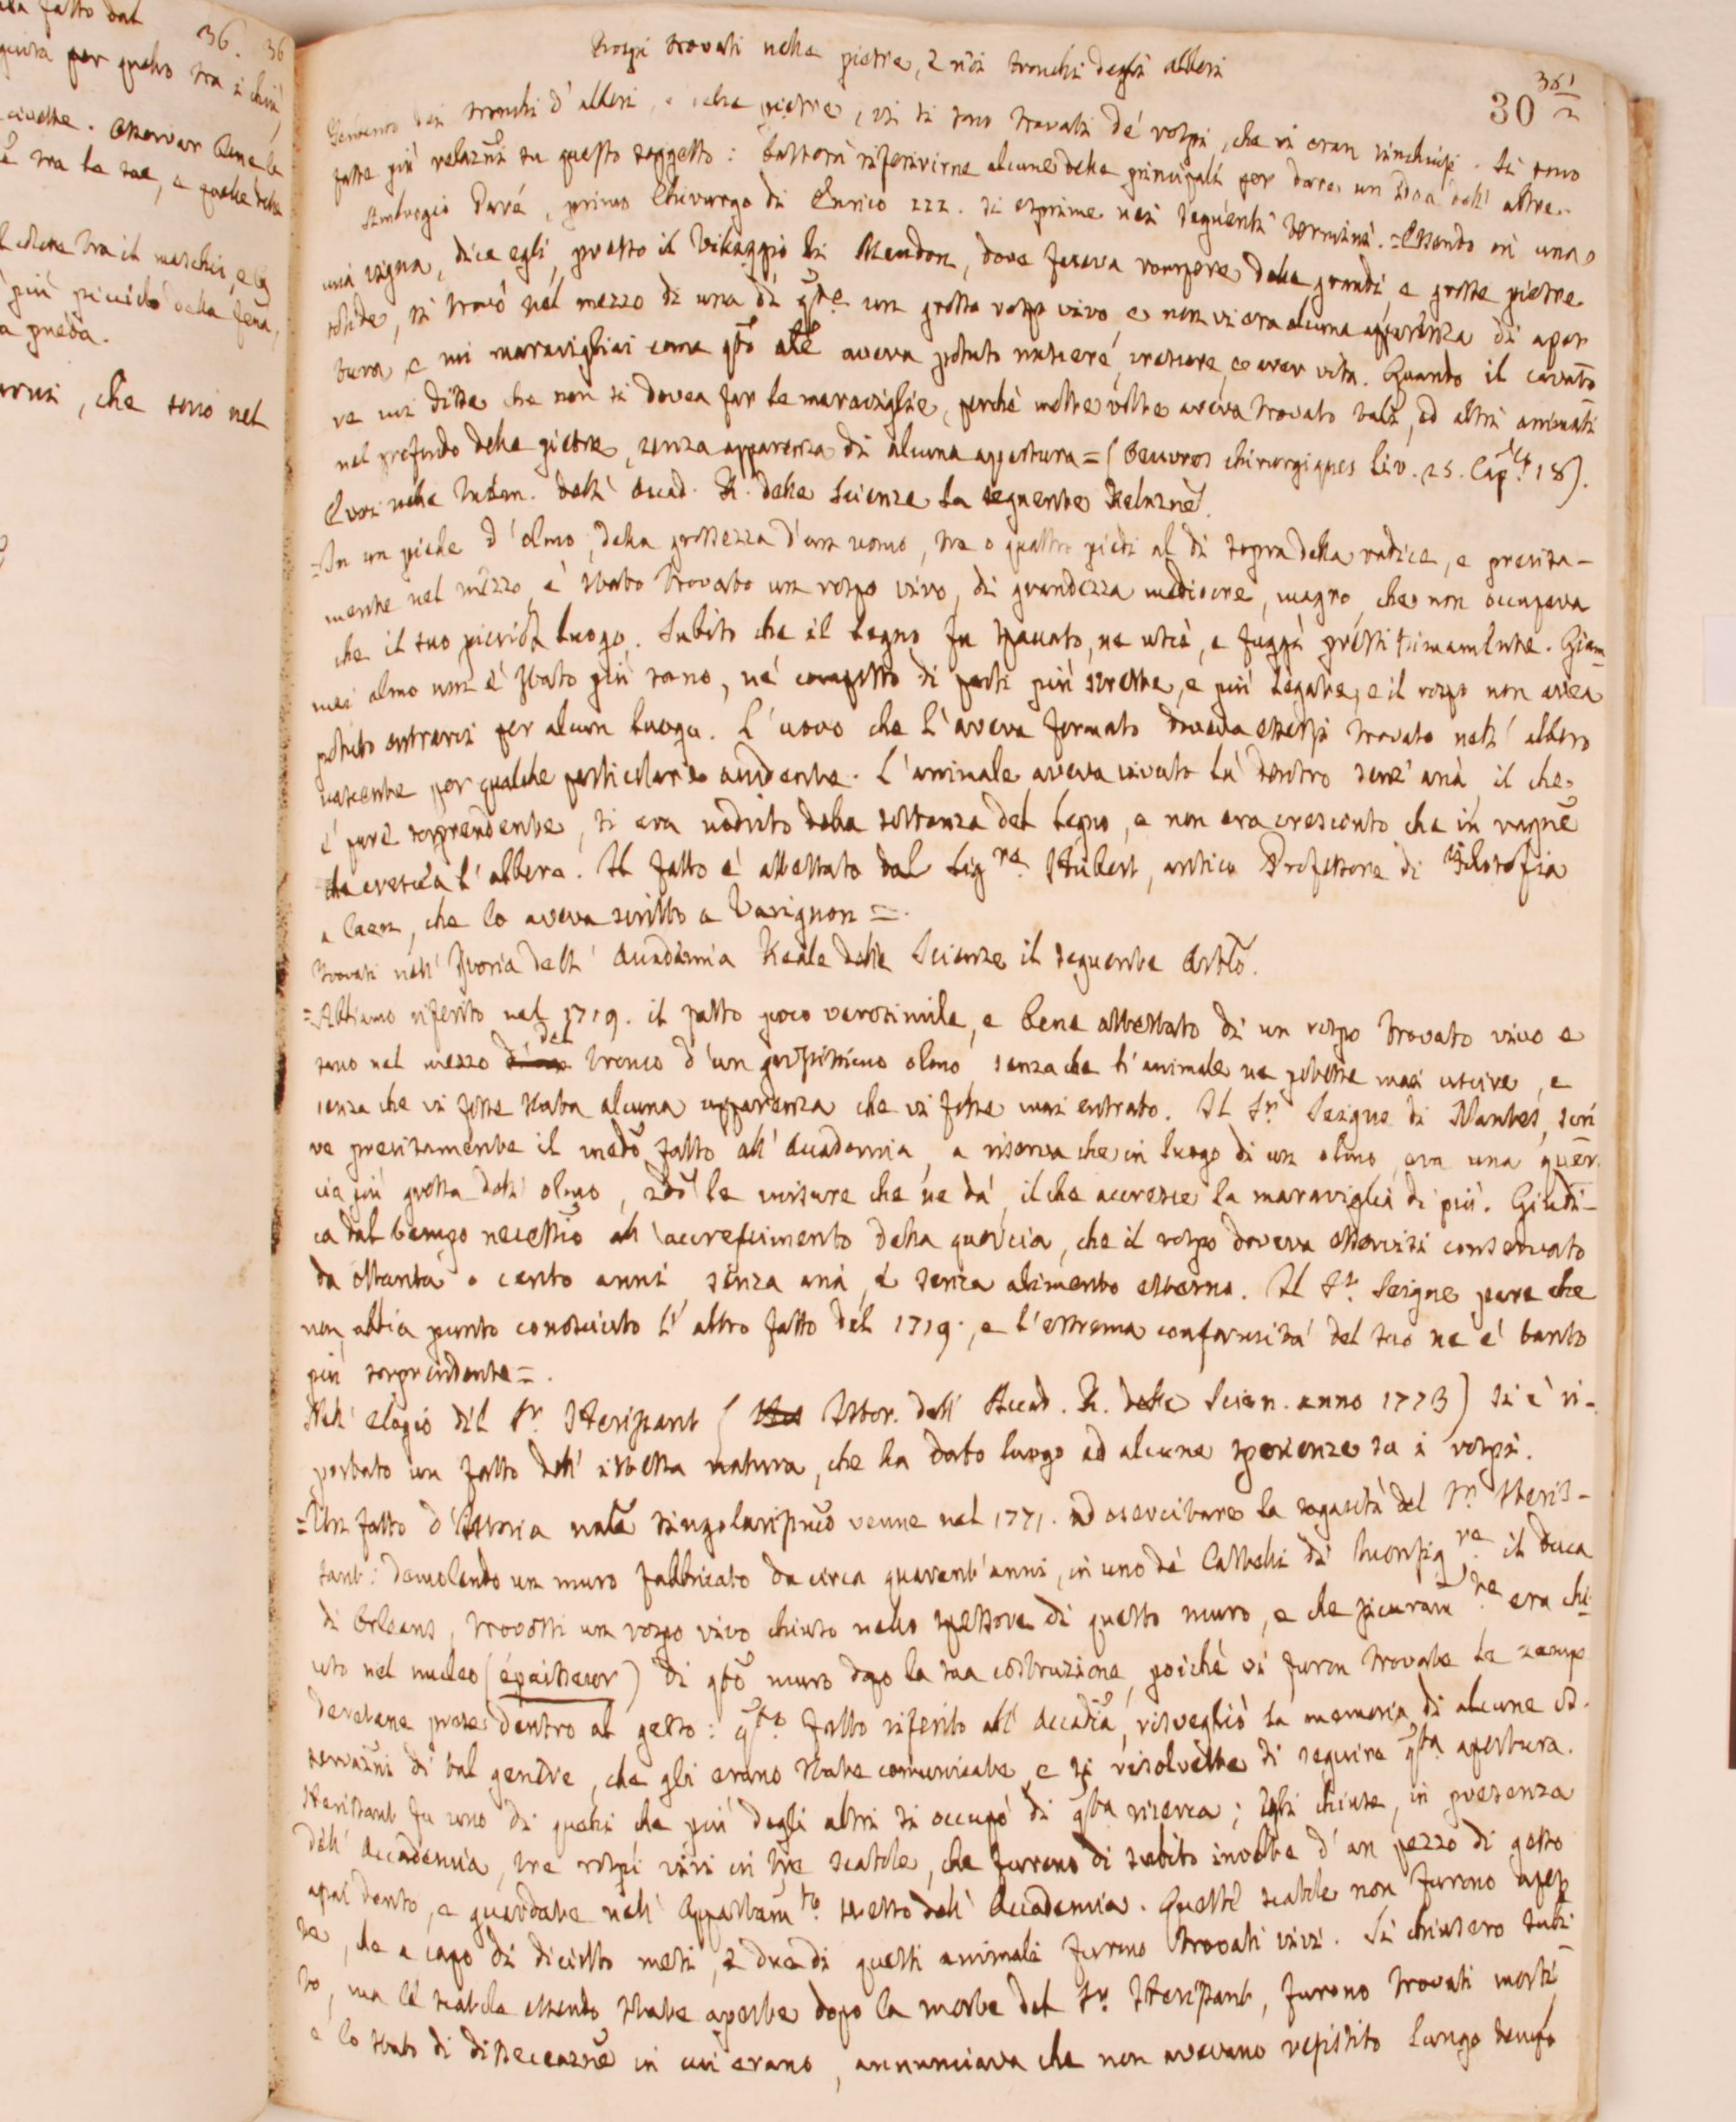 36. 36
36
30
Rospi trovati nelle pietre, e nei tronchi degli alberi
dei tronchi d'alberi, e nelle pietre, vi si sono trovati de' rospi, che vi eran rinchiusi. Si sono
fatte più relazni su questo soggetto: basterà riferirne alcune delle principali per dare un idea dell' altre.
Ambrogio Paré, primo Chirurgo di Enrico III. si esprime nei seguenti termini. = Essendo in una
mia vigna, dice egli, presso il Villaggio di Meudon, dove faceva rompere delle grandi, e grosse pietre
solide, si trovò nel mezzo di una di qste un grosso rospo vivo, e non vi era alcuna apparenza di aper
tura, e mi maravigliai come qto ale aveva potuto nascere, crescere, e aver vita. Quando il cavato
re mi disse che non si dovea far le maraviglie, perchè molte volte aveva trovato tali, ed altri animali
nel profondo delle pietre, senza apparenza di alcuna appertura = (Oeuvres chirurgiques Liv. 25. Cap. 18).
Evvi nelle Mem. dell' Accad. R. delle Scienze la seguente Relazne.
= In un piede d'olmo, della grossezza d'un uomo, tre o quattro piedi al di sopra della radice, e precisa-
mente nel mezzo, è stato trovato un rospo vivo, di grandezza mediocre, magro, che non occupava
che il suo picciol luogo. Subito che il legno fu spaccato, ne uscì, e fuggì prestissimamente. Giam=
mai olmo non è stato più sano, nè composto di parti più strette, e più legate, e il rospo non avea
potuto entrarvi per alcun luogo. L'uovo che l'aveva formato doveva essersi trovato nell' albero
nascente per qualche particolare accidente. L'animale aveva vivuto là dentro senz' aria, il che
è pure sorprendente, si era nodrito della sostanza del legno, e non era cresciuto che in ragne
che cresceva l'albero. Il fatto è attestato dal Sigre. Hubert, antico Professore di Filosofia
a Caen, che lo aveva scritto a Varignon =.
Trovasi nell' Istoria dell' Accademia Reale delle Scienze il seguente Artlo.
= Abbiamo riferito nel 1719. il fatto poco verosimile, e bene attestato di un rospo trovato vivo e
sano nel mezzo del tronco d'un grossissimo olmo senza che l'animale ne potesse mai uscire, e
senza che vi fosse stata alcuna apparenza che vi fosse mai entrato. Il Sr. Seigne di Nantes, scri
ve precisamente il medo fatto all' Accademia, a riserva che in luogo di un olmo, era una quer
cia più grossa dell' olmo, 2do le misure che ne dà, il che accresce la maraviglia di più. Giudi-
ca dal tempo necessio all' accrescimento della quercia, che il rospo doveva esservisi conservato
da ottanta o cento anni, senza aria, e senza alimento esterno. Il Sr. Seigne pare che
non abbia punto conosciuto l'altro fatto del 1719., e l'estrema conformità del suo ne è tanto
più sorprendente =.
Nell' elogio del Sr. Herissant (Istor. dell' Accad. R. delle Scien. anno 1773) si è ri-
portato un fatto dell' istessa natura, che ha dato luogo ad alcune sperienze su i rospi.
= Un fatto d'Istoria nale singolarissimo venne nel 1771. ad esercitare la sagacità del Sr. Heris-
sant: demolendo un muro fabbricato da circa quarant'anni, in uno de' Castelli di Monsigre. il Duca
di Orleans, trovossi un rospo vivo chiuso nello spessore di questo muro, e che sicuramte. era chi-
uso nel nucleo (épaisseur) di qto muro dopo la sua costruzione, poichè vi furon trovate le zampe
deretane prese dentro al gesso: qsto fatto riferito all' Accadia, risvegliò la memoria di alcune os-
servazni di tal genere, che gli erano state comunicate, e si risolvette di seguire qsta apertura.
Herissant fu uno di quelli che più degli altri si occupò di qsta ricerca; Egli chiuse, in presenza
dell' Accademia, tre rospi vivi in tre scatole, che furono di subito involte d'un pezzo di gesso
, e guardate nell' Appartamto. stesso dell' Accademia. Queste scatole non furono aper
te, che a capo di diciotto mesi, e due di questi animali furono trovati vivi. Si chiusero subi
to, ma le scatole essendo state aperte dopo la morte del Sr. Herissant, furono trovati morti,
e lo stato di dissecazne in cui erano, annunciava che non avevano resistito lungo tempo